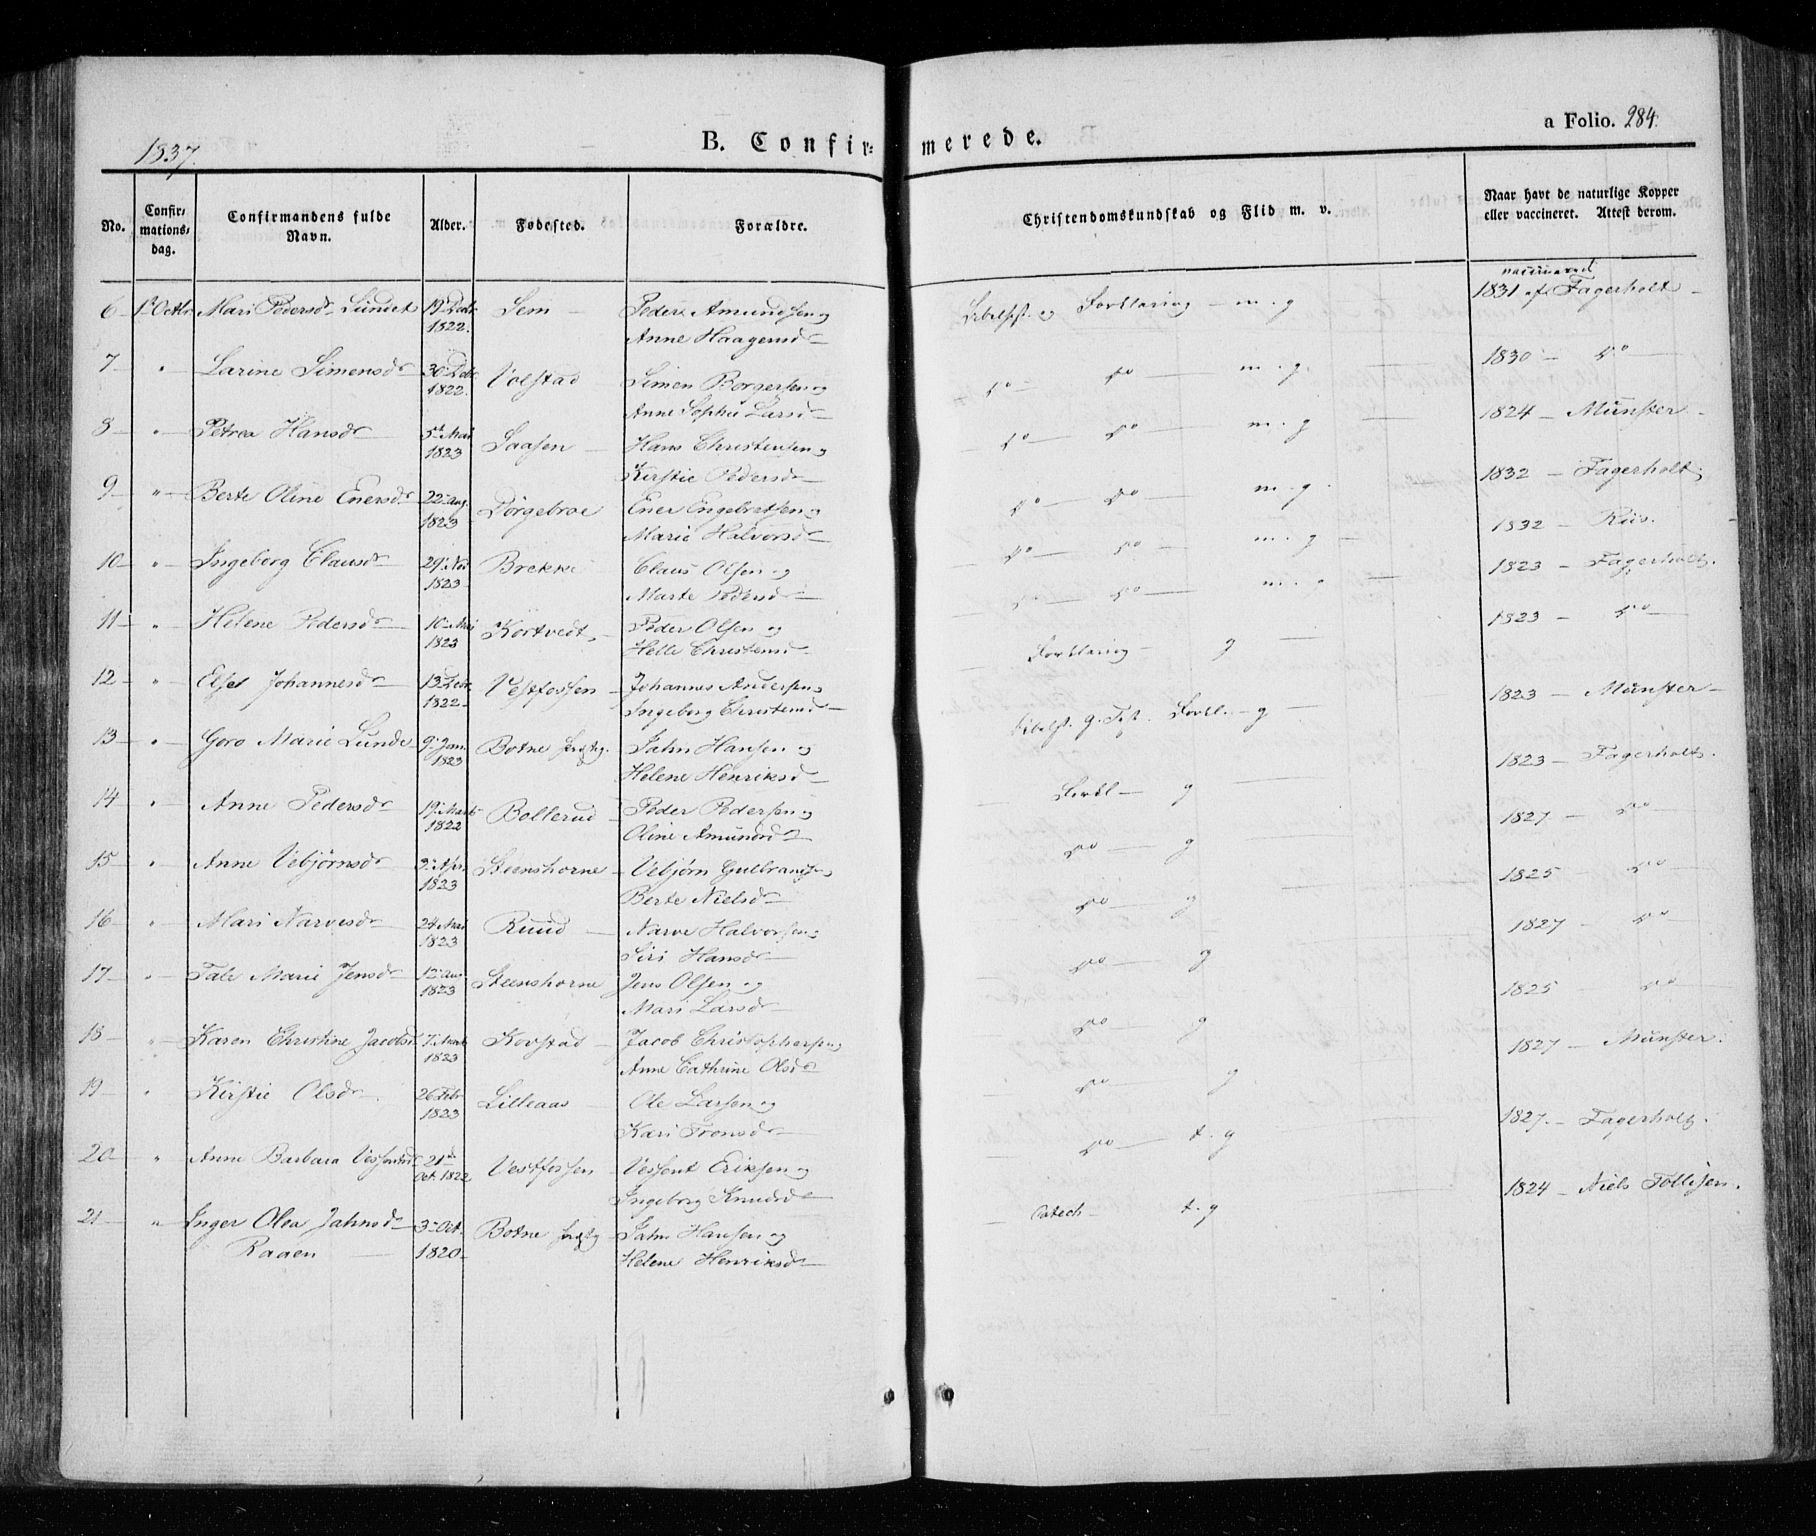 1837.
B. Confir- merede.
a Folio. 284.
No.
Confir-
mations-
dag.
Confirmandens fulde
Navn.
Alder.
Fødested.
Forældre.
Christendomskundskab og Flid m. v.
Naar havt de naturlige Kopper
eller vaccineret. Attest derom.
6 1 Octbr Mari Pedersdr Lundet 19 Decbr 1822. Sem Peder Amundsen og Anne Haagensdr Bibelhst. og Forklaring m. g vaccinered 1831 af Fagerholt
7 " Larine Simensdr 30 Decbr 1822. Volstad Simen Borgersen og Anne Sophie Larsdr do do m. g. 1830 do
8 " Petrea Hansdr 5t Mai 1823 Saasen Hans Christensen og Kirstie Pedersdr do do m. g 1824 Münster
9 " Berte Oline Enersdr 22 Aug. 1823 Dørgebroe Ener Engebretsen og Marie Halvorsdr do do m. g. 1832 Fagerholt
10 " Ingeborg Clausdr 29 Nov 1823 Brekke Claus Olsen og Marte Pedersdr do do m. g 1832 Riis.
11 " Helene Pedersdr 10 Mai 1823 Kortvedt Peder Olsen og Helle Christensdr do do m. 1823 Fagerholt.
12 " Elset Johannesdr 13 Decbr 1822 Vestfossen Johannes Andersen og Ingeborg Christensdr Forklaring g 1823 do
13 " Goro Marie Lunde 9 Jan. 1823 Botne Jahn Hansen og Helene Henriksdr Bibelhst. Forkl. g 1823 Münster
14 " Anne Pedersdr 19 Marts 1822 Bollerud Peder Pedersen og Oline Amundsdr Forkl g 1823 Fagerholt.
15 " Anne Vebjørnsdr 3 Apr. 1823 Steenshorne Vebjørn Gulbrandsen og Berte Nielsdr do g 1827 do
16 " Mari Narvesdr 24 Mai 1823 Ruud Narve Halvorsen og Siri Hansdr do g 1825 do
17 " Tale Marie Jensdr 12 Aug 1823 Steenshorne Jens Olsen og Mari Larsdr do g 1827 do
18 " Karen Christine Jacobsd 7 Marts 1823 Korstad Jacob Christophersen og Anne Cathrine Olsdr do g 1825 do
19 " Kirstie Olsdr 26 Febr 1823 Lilleaas Ole Larsen og Kari Tronsdr do g 1827 Münster
20 " Anne Barbara 21d Oct. 1822 Vestfossen Eriksen og Ingeborg Knudsdr do t. g 1827. Fagerholt.
21 " Inger Olea Jahnsdr Raaen 3 Oct. 1820 Botne Jahn Hansen og Helene Henriksdr Catech t. g 1824 Niels Tollefsen.